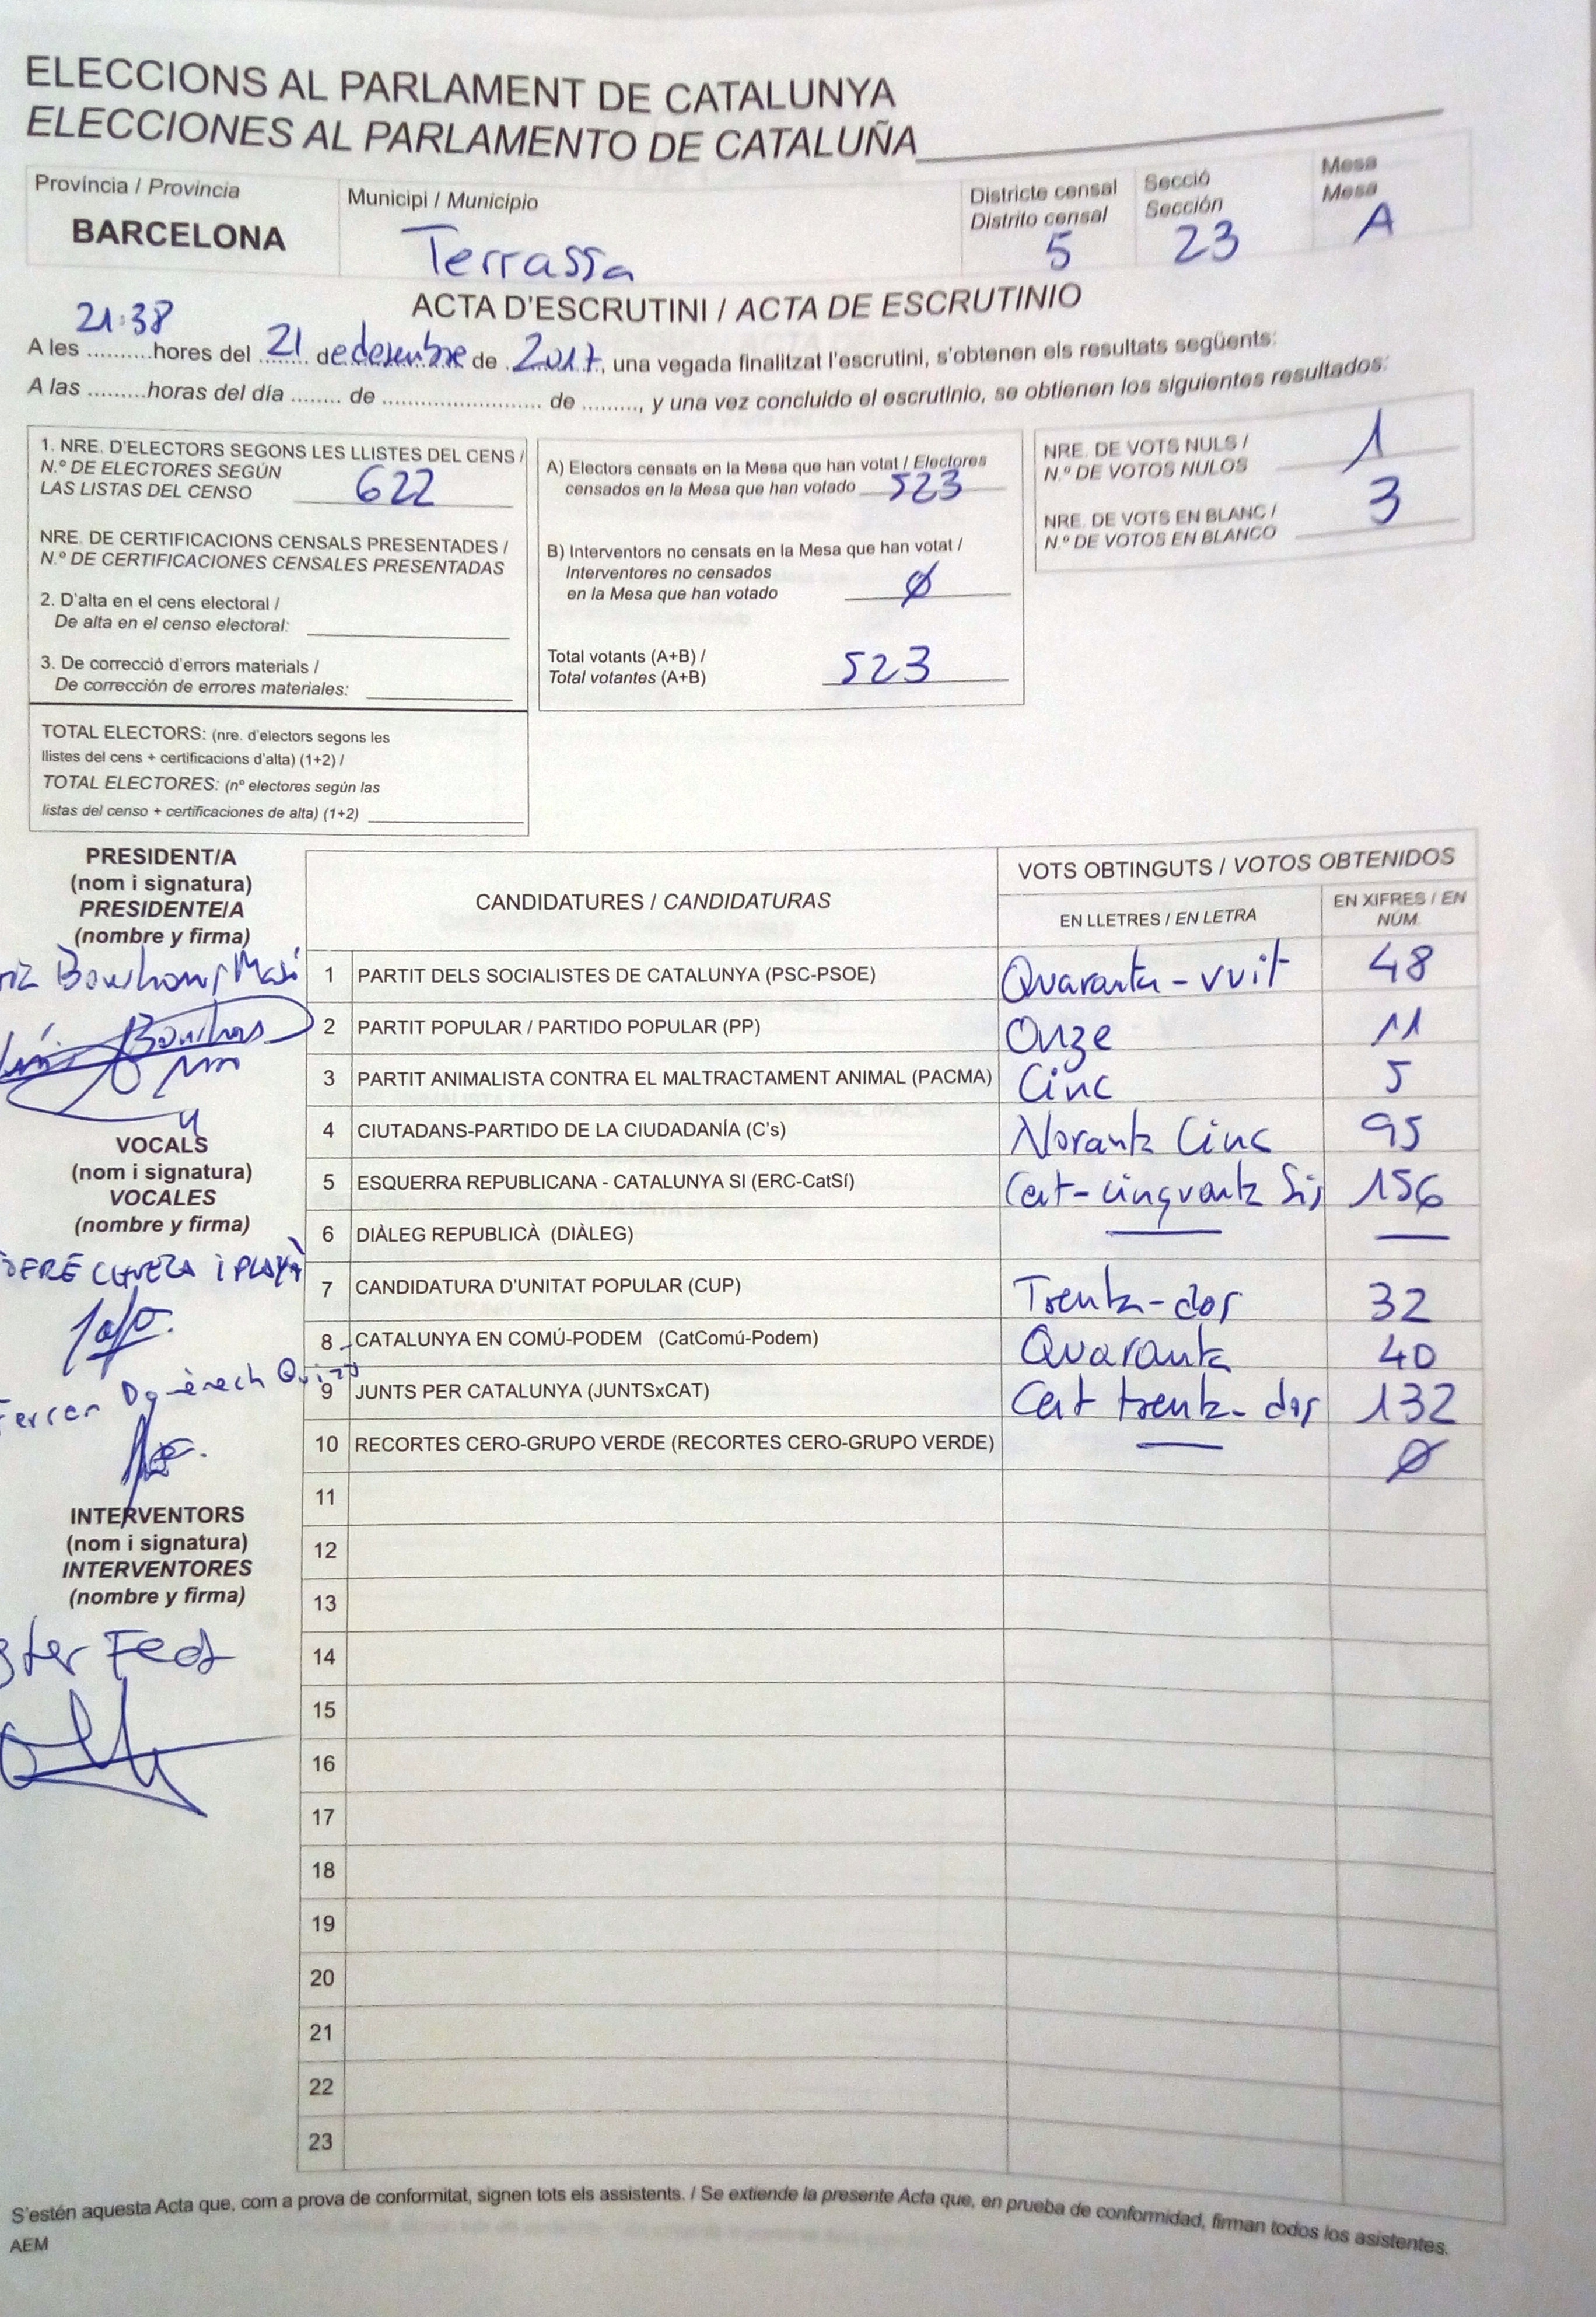 ELECCIONS AL PARLAMENT DE CATALUNYA
ELECCIONES AL PARLAMENTO DE CATALUÑA
Província / Provincia
BARCELONA
Municipi / Municipio
Terrassa
Districte censal
Distrito censal
5
Secció
Sección
23
Mesa
Mesa
A
ACTA D'ESCRUTINI / ACTA DE ESCRUTINIO
21:38
A les ..........hores del 21 de desembre de 2017, una vegada finalitzat l'escrutini, s'obtenen els resultats següents:
A las .........horas del día ........ de ........................ de ........., y una vez concluido el escrutinio, se obtienen los siguientes resultados:
1. NRE. D'ELECTORS SEGONS LES LLISTES DEL CENS /
N.º DE ELECTORES SEGÚN
LAS LISTAS DEL CENSO 622
NRE. DE CERTIFICACIONS CENSALS PRESENTADES /
N.º DE CERTIFICACIONES CENSALES PRESENTADAS
2. D'alta en el cens electoral /
De alta en el censo electoral:
3. De correcció d'errors materials /
De corrección de errores materiales:
TOTAL ELECTORS: (nre. d'electors segons les
llistes del cens + certificacions d'alta) (1+2) /
TOTAL ELECTORES: (nº electores según las
listas del censo + certificaciones de alta) (1+2)
A) Electors censats en la Mesa que han votat / Electores
censados en la Mesa que han votado 523
B) Interventors no censats en la Mesa que han votat /
Interventores no censados
en la Mesa que han votado Ø
Total votants (A+B) /
Total votantes (A+B) 523
NRE. DE VOTS NULS /
N.º DE VOTOS NULOS 1
NRE. DE VOTS EN BLANC /
N.º DE VOTOS EN BLANCO 3
PRESIDENT/A
(nom i signatura)
PRESIDENTE/A
(nombre y firma)
VOCALS
(nom i signatura)
VOCALES
(nombre y firma)
INTERVENTORS
(nom i signatura)
INTERVENTORES
(nombre y firma)
CANDIDATURES / CANDIDATURAS
VOTS OBTINGUTS / VOTOS OBTENIDOS
EN LLETRES / EN LETRA
EN XIFRES / EN
NÚM.
1 PARTIT DELS SOCIALISTES DE CATALUNYA (PSC-PSOE) Quaranta-vuit 48
2 PARTIT POPULAR / PARTIDO POPULAR (PP) Onze 11
3 PARTIT ANIMALISTA CONTRA EL MALTRACTAMENT ANIMAL (PACMA) Cinc 5
4 CIUTADANS-PARTIDO DE LA CIUDADANÍA (C's) Noranta Cinc 95
5 ESQUERRA REPUBLICANA - CATALUNYA SI (ERC-CatSí) Cent-cinquanta Sis 156
6 DIÀLEG REPUBLICÀ (DIÀLEG) — —
7 CANDIDATURA D'UNITAT POPULAR (CUP) Trenta-dos 32
8 CATALUNYA EN COMÚ-PODEM (CatComú-Podem) Quaranta 40
9 JUNTS PER CATALUNYA (JUNTSxCAT) Cent trenta-dos 132
10 RECORTES CERO-GRUPO VERDE (RECORTES CERO-GRUPO VERDE) — Ø
11
12
13
14
15
16
17
18
19
20
21
22
23
S'estén aquesta Acta que, com a prova de conformitat, signen tots els assistents. / Se extiende la presente Acta que, en prueba de conformidad, firman todos los asistentes.
AEM